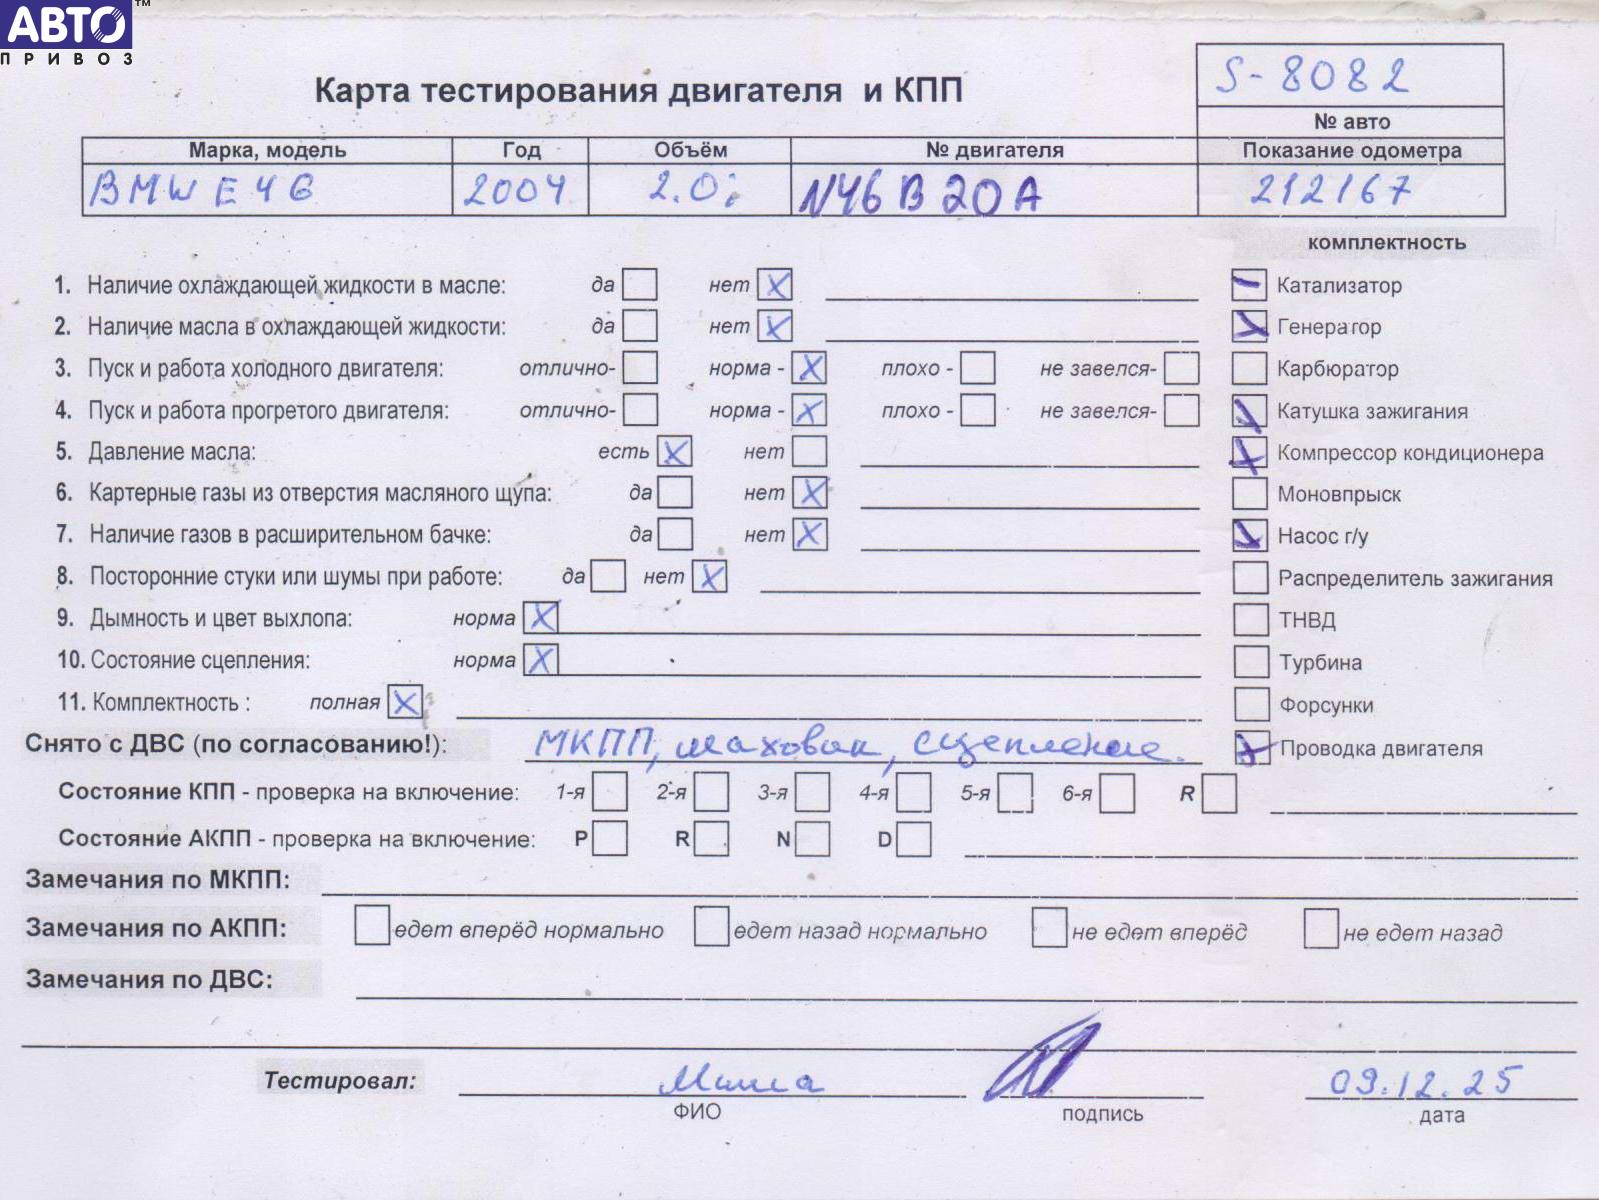 АВТО™
ПРИВОЗ
S-8082
Карта тестирования двигателя и КПП
№ авто
Марка, модель Год Объём № двигателя Показание одометра
BMW E46 2004 2.0i N46B20A 212167
комплектность
1. Наличие охлаждающей жидкости в масле: да нет X - Катализатор
2. Наличие масла в охлаждающей жидкости: да нет X X Генератор
3. Пуск и работа холодного двигателя: отлично- норма - X плохо - не завелся- Карбюратор
4. Пуск и работа прогретого двигателя: отлично- норма - X плохо - не завелся- X Катушка зажигания
5. Давление масла: есть X нет X Компрессор кондиционера
6. Картерные газы из отверстия масляного щупа: да нет X Моновпрыск
7. Наличие газов в расширительном бачке: да нет X X Насос г/у
8. Посторонние стуки или шумы при работе: да нет X Распределитель зажигания
9. Дымность и цвет выхлопа: норма X ТНВД
10. Состояние сцепления: норма X Турбина
11. Комплектность : полная X Форсунки
Снято с ДВС (по согласованию!): МКПП, маховик, сцепление. X Проводка двигателя
Состояние КПП - проверка на включение: 1-я 2-я 3-я 4-я 5-я 6-я R
Состояние АКПП - проверка на включение: P R N D
Замечания по МКПП:
Замечания по АКПП: едет вперёд нормально едет назад нормально не едет вперёд не едет назад
Замечания по ДВС:
Тестировал: Миша 09.12.25
ФИО подпись дата